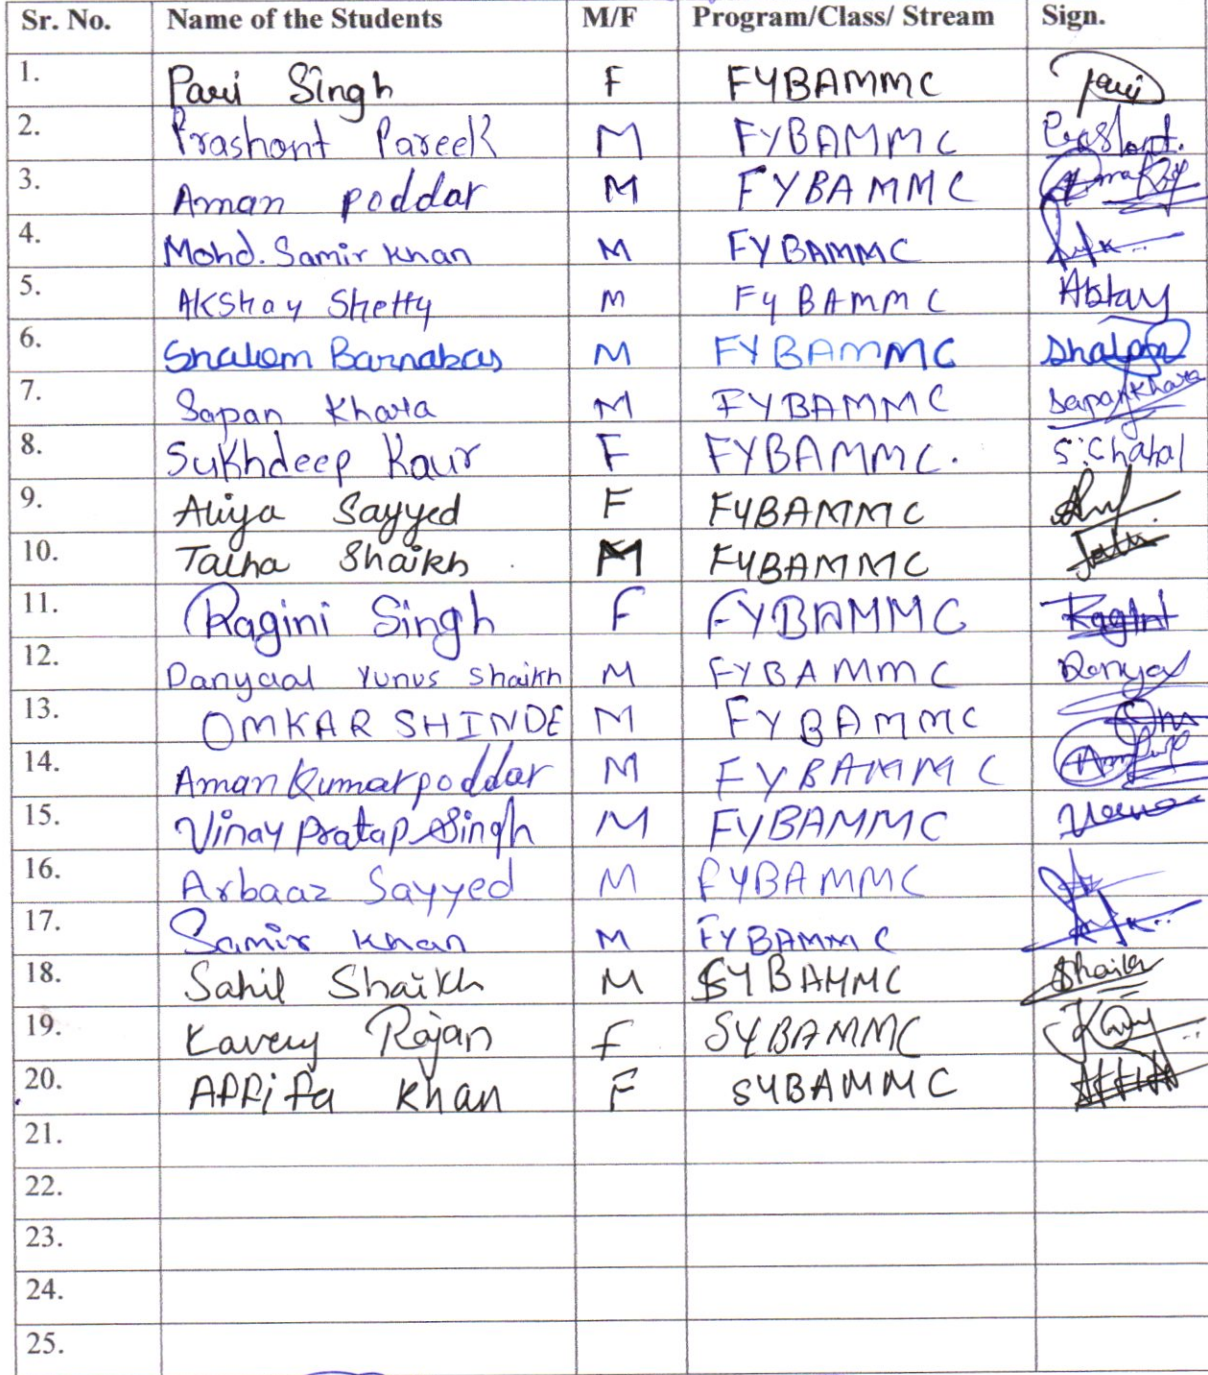 Sr. No. Name of the Students M/F Program/Class/ Stream Sign.
1. Pari Singh F FYBAMMC Pari
2. Prashant Pareek M FYBAMMC Prashant.
3. Aman poddar M FYBAMMC
4. Mohd. Samir Khan M FYBAMMC
5. Akshay Shetty M FYBAMMC
6. Shalom Barnabas M FYBAMMC Shalom
7. Sapan Khata M FYBAMMC Sapan Khata
8. Sukhdeep Kaur F FYBAMMC. S. Chahal
9. Aliya Sayyed F FYBAMMC
10. Talha Shaikh M FYBAMMC
11. Ragini Singh F FYBAMMC Ragini
12. Danyaal Yunus Shaikh M FYBAMMC
13. OMKAR SHINDE M FYBAMMC Om
14. Aman Kumar poddar M FYBAMMC
15. Vinay Pratap Singh M FYBAMMC
16. Arbaaz Sayyed M FYBAMMC
17. Samir Khan M FYBAMMC
18. Sahil Shaikh M SYBAMMC Shaikh
19. Kavery Rajan F SYBAMMC
20. Affifa Khan F SYBAMMC
21.
22.
23.
24.
25.